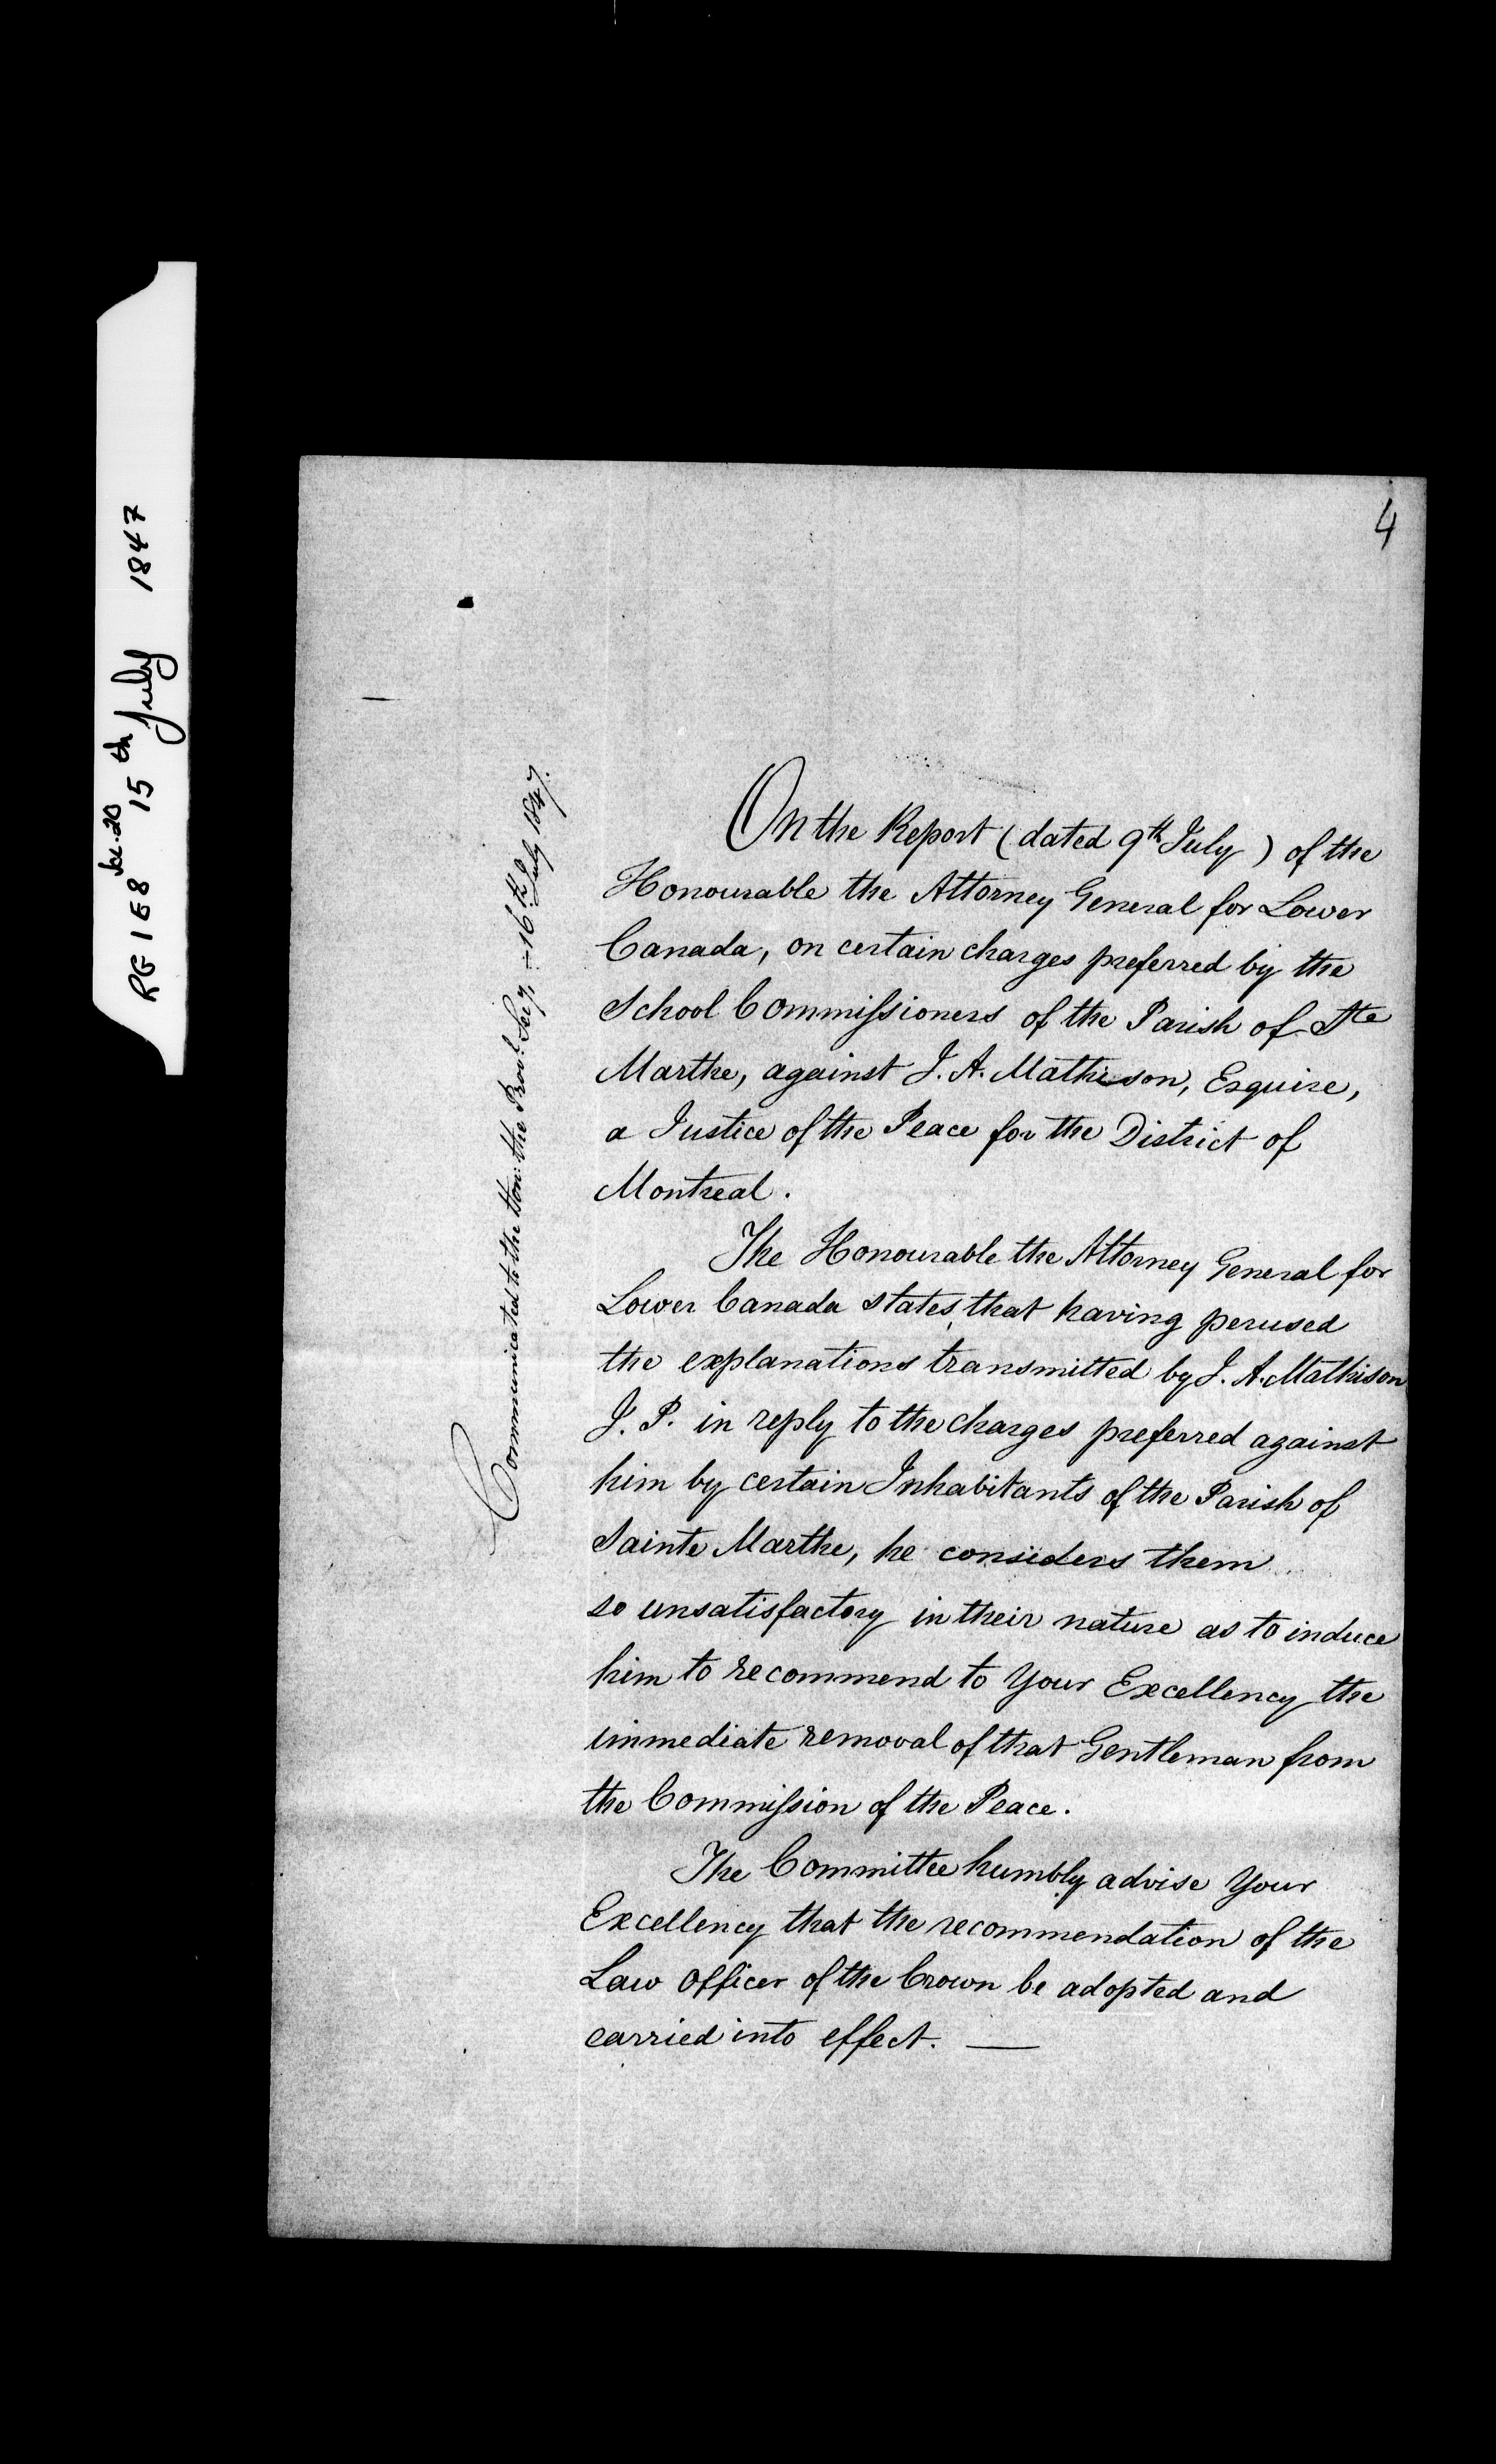 RG 1 E 8 Vol. 20 15th July 1847
4
Communicated to the Hon: the Provl. Secy. - 16th July 1847.
On the Report (dated 9th July) of the
Honourable the Attorney General for Lower
Canada, on certain charges preferred by the
School Commissioners of the Parish of Ste
Marthe, against J. A. Mathison, Esquire,
a Justice of the Peace for the District of
Montreal.
The Honourable the Attorney General for
Lower Canada states, that having perused
the explanations transmitted by J. A. Mathison
J. P. in reply to the charges preferred against
him by certain Inhabitants of the Parish of
Sainte Marthe, he considers them
so unsatisfactory in their nature as to induce
him to recommend to Your Excellency the
immediate removal of that Gentleman from
the Commission of the Peace.
The Committee humbly advise Your
Excellency that the recommendation of the
Law Officer of the Crown be adopted and
carried into effect. —